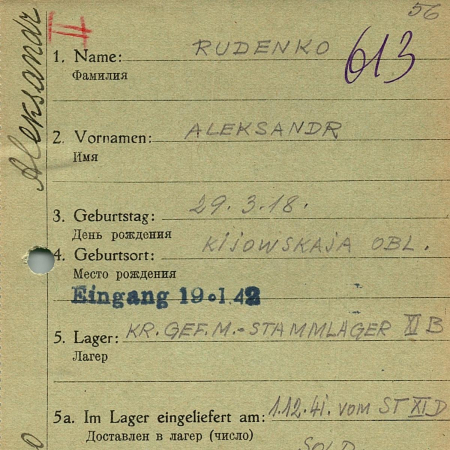 56
Aleksandr
II
1. Name: RUDENKO
Фамилия
613
2. Vornamen: ALEKSANDR
Имя
3. Geburtstag: 29.3.18.
День рождения
4. Geburtsort: KIJOWSKAJA OBL.
Место рождения
Eingang 19.1.42
5. Lager: KR. GEF. M.-STAMMLAGER XI B
Лагер
5a. Im Lager eingeliefert am: 1.12.41. VOM ST XI D
Доставлен в лагер (число)
SOLD